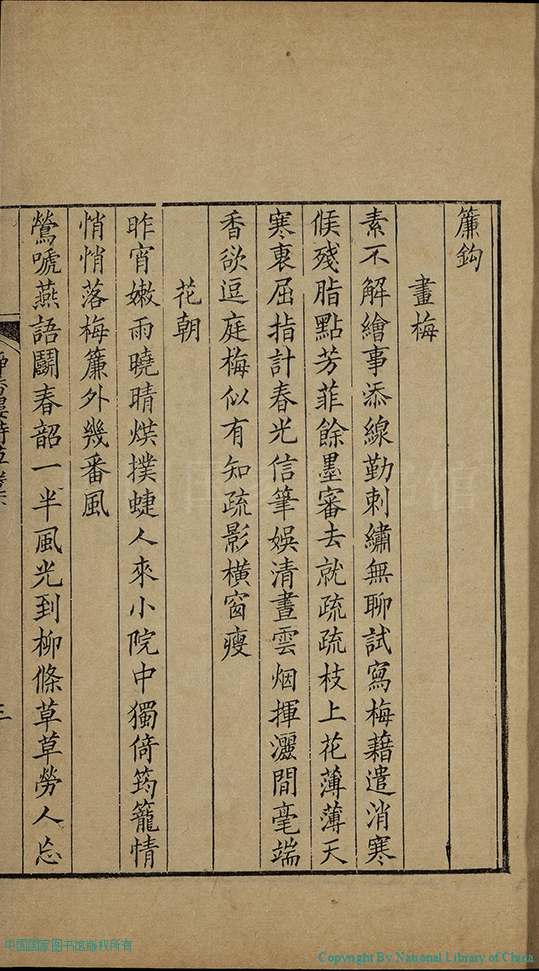 簾鈎
畫梅
素不解繪事添線勤刺繡無聊試寫梅藉遣消寒
候殘脂點芳菲餘墨審去就疏疏枝上花薄薄天
寒裏屈指計春光信筆娛清晝雲烟揮灑間毫端
香欲逗庭梅似有知疏影橫窗瘦
花朝
昨宵嫩雨曉晴烘撲蜨人來小院中獨倚筠籠情
悄悄落梅簾外幾番風
鶯嗁燕語鬭春韶一半風光到柳條草草勞人忘
三
中国国家图书馆版权所有
Copyright By National Library of China